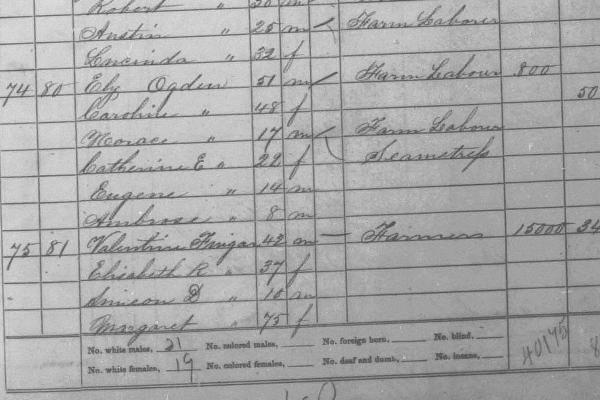 Robert "
Austin " 25 m Farm Labour
Lucinda " 32 f
74 80 Ely Ogden 51 m Farm Labour 800
50
Caroline " 48 f
Horace " 17 m Farm Labour
Catherine E " 22 f Seamstress
Eugene " 14 m
Ambrose " 8 m
75 81 Valentine Fingar 42 m — Farmers 15000 34
Elisabeth R " 37 f
Simeon D " 10 m
Margaret " 75 f
No. white males, 21 No. colored males, No. foreign born, No. blind,
No. white females, 19 No. colored females, No. deaf and dumb, No. insane, 40175 8